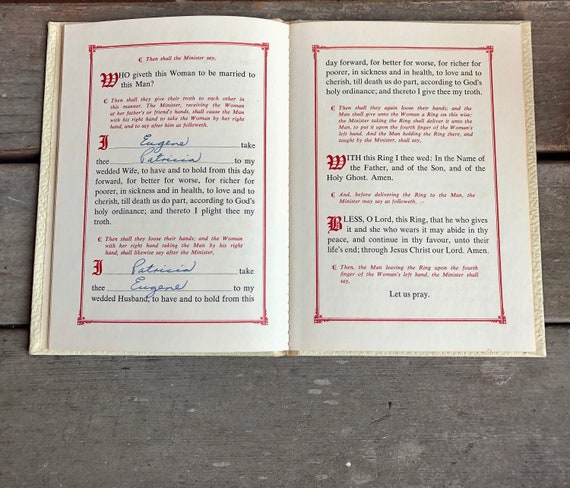 ℂ Then shall the Minister say,
WHO giveth this Woman to be married to
this Man?
ℂ Then shall they give their troth to each other in
this manner. The Minister, receiving the Woman
at her father's or friend's hands, shall cause the Man
with his right hand to take the Woman by her right
hand, and to say after him as followeth.
I Eugene take
thee Patricia to my
wedded Wife, to have and to hold from this day
forward, for better for worse, for richer for
poorer, in sickness and in health, to love and to
cherish, till death us do part, according to God's
holy ordinance; and thereto I plight thee my
troth.
ℂ Then shall they loose their hands; and the Woman
with her right hand taking the Man by his right
hand, shall likewise say after the Minister,
I Patricia take
thee Eugene to my
wedded Husband, to have and to hold from this
day forward, for better for worse, for richer for
poorer, in sickness and in health, to love and to
cherish, till death us do part, according to God's
holy ordinance; and thereto I give thee my troth.
ℂ Then shall they again loose their hands; and the
Man shall give unto the Woman a Ring on this wise:
the Minister taking the Ring shall deliver it unto the
Man, to put it upon the fourth finger of the Woman's
left hand. And the Man holding the Ring there, and
taught by the Minister, shall say,
WITH this Ring I thee wed: In the Name of
the Father, and of the Son, and of the
Holy Ghost. Amen.
ℂ And, before delivering the Ring to the Man, the
Minister may say as followeth. ..
BLESS, O Lord, this Ring, that he who gives
it and she who wears it may abide in thy
peace, and continue in thy favour, unto their
life's end; through Jesus Christ our Lord. Amen.
ℂ Then, the Man leaving the Ring upon the fourth
finger of the Woman's left hand, the Minister shall
say,
Let us pray.